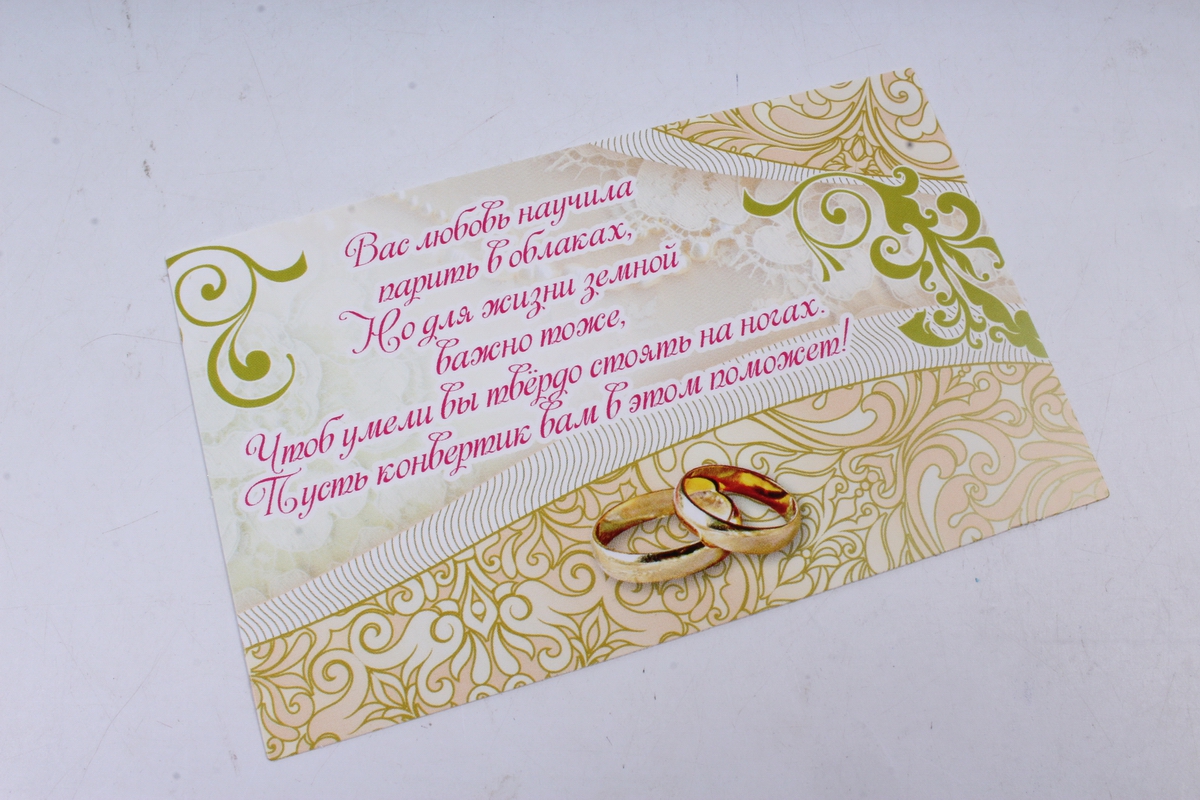 Вас любовь научила
парить в облаках,
Но для жизни земной
важно тоже,
Чтоб умели вы твёрдо стоять на ногах.
Пусть конвертик вам в этом поможет!